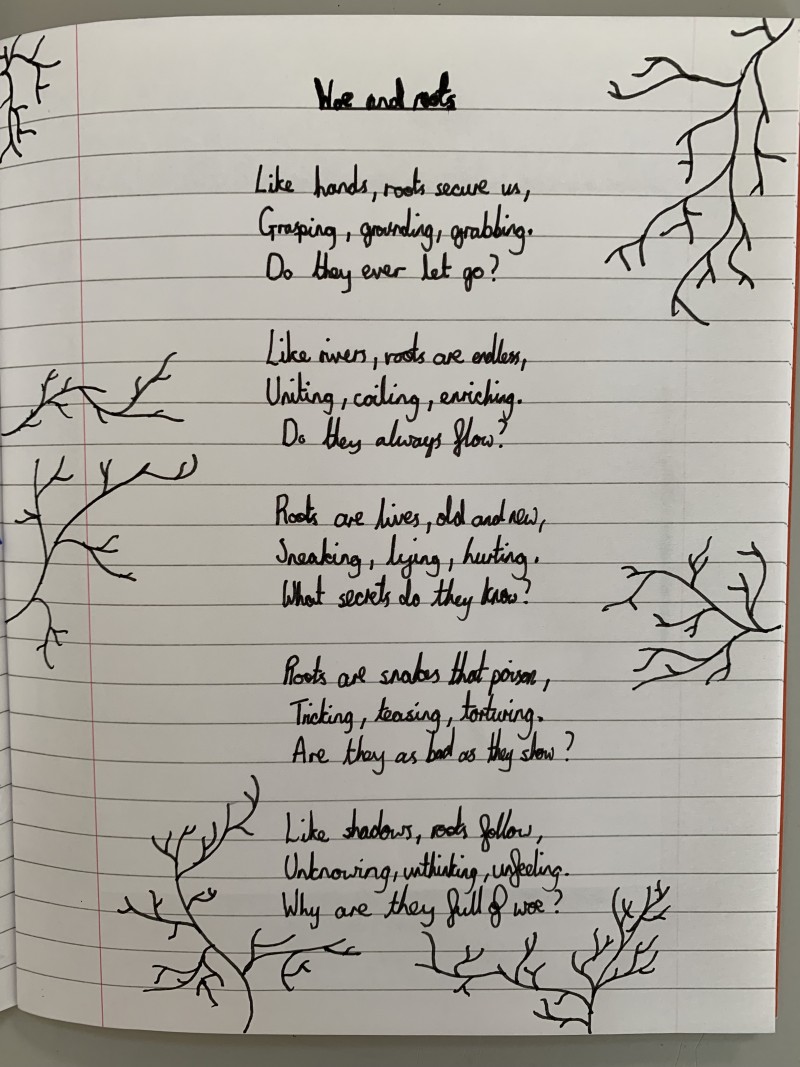 Woe and roots
Like hands, roots secure us,
Grasping, grounding, grabbing.
Do they ever let go?
Like rivers, roots are endless,
Uniting, coiling, enriching.
Do they always flow?
Roots are lives, old and new,
Sneaking, lying, hurting.
What secrets do they know?
Roots are snakes that poison,
Tricking, teasing, torturing.
Are they as bad as they show?
Like shadows, roots follow,
Unknowing, unthinking, unfeeling.
Why are they full of woe?